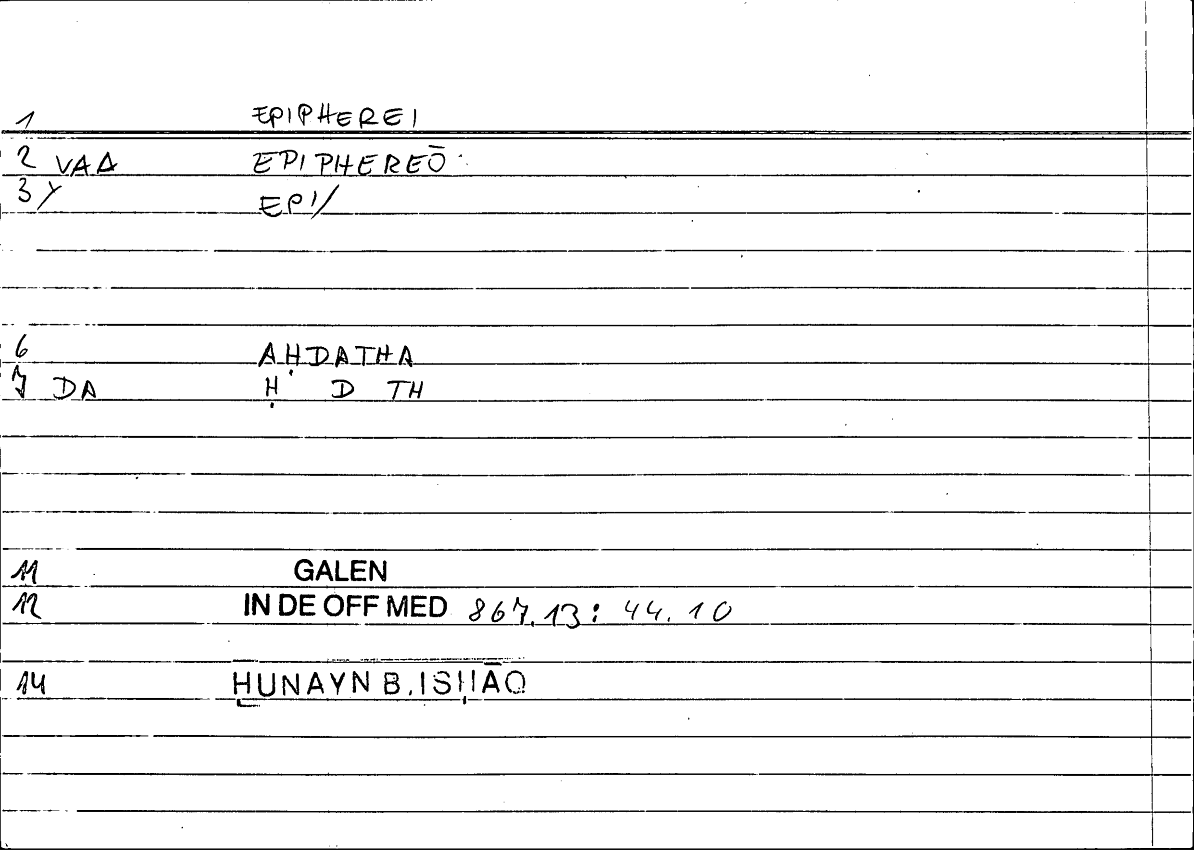 1 EPIPHEREI
2 VAA EPIPHEREŌ
3 Y EPI/
6 AḤDATHA
7 DA Ḥ D TH
11 GALEN
12 IN DE OFF MED 867.13: 44.10
14 ḤUNAYN B. ISḤĀQ